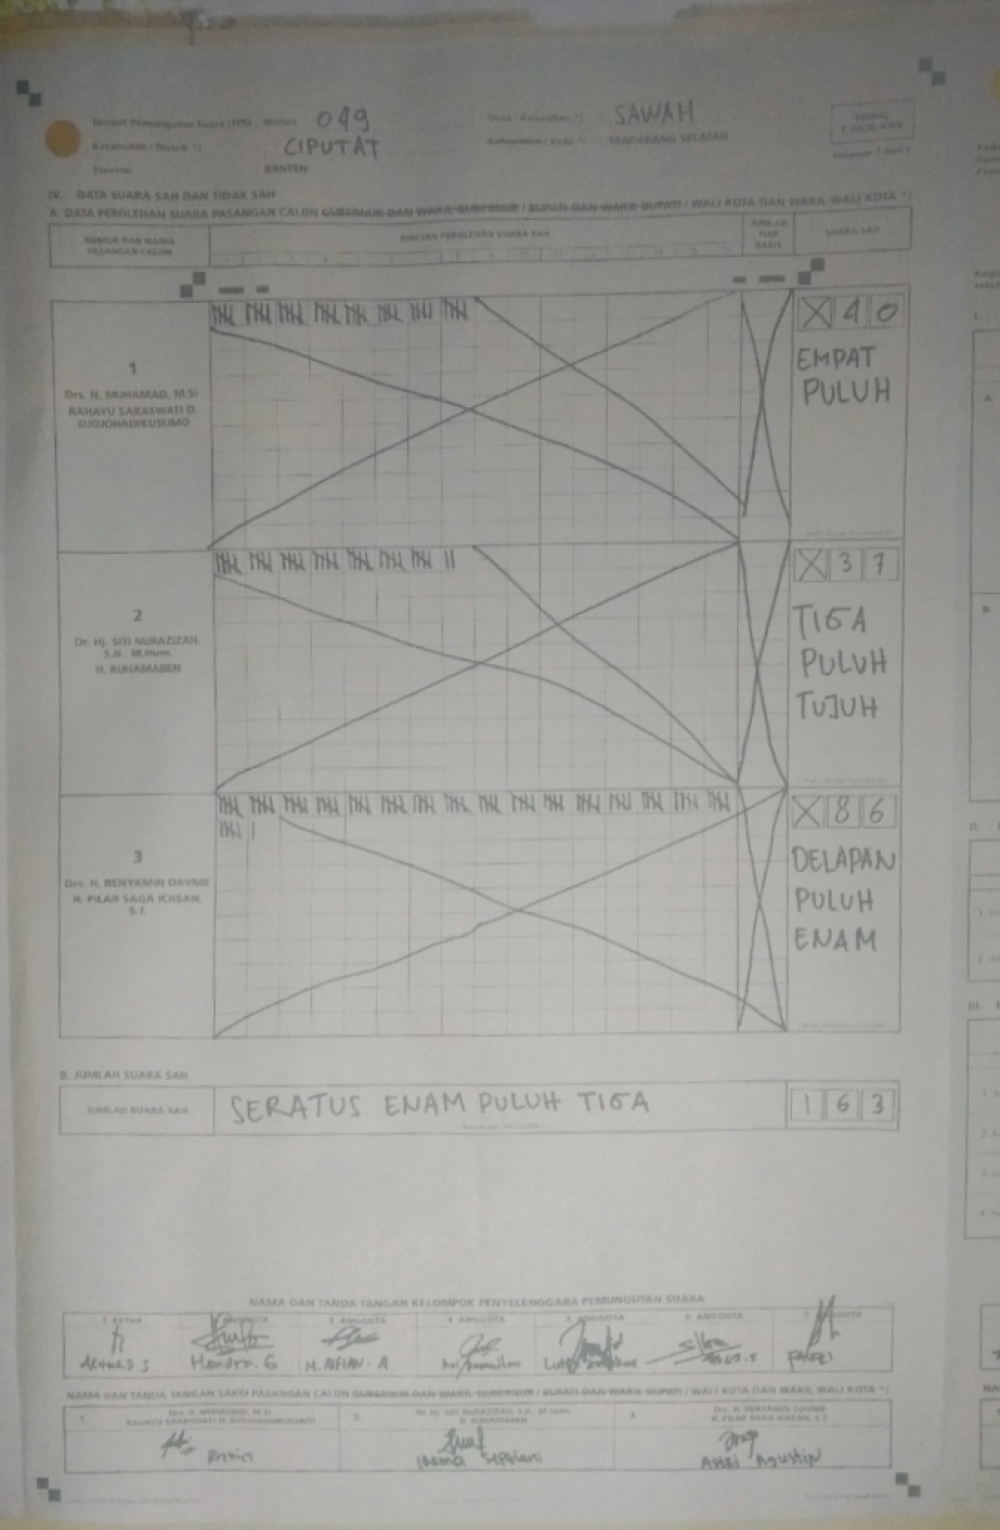 Tempat Pemungutan Suara (TPS) Nomor : 049
Desa / Kelurahan *) : SAWAH
MODEL
C.HASIL-KWK
Kecamatan / Distrik *) : CIPUTAT
Kabupaten / Kota *) : TANGERANG SELATAN
Provinsi : BANTEN
IV. DATA SUARA SAH DAN TIDAK SAH
A. DATA PEROLEHAN SUARA PASANGAN CALON GUBERNUR DAN WAKIL GUBERNUR / BUPATI DAN WAKIL BUPATI / WALI KOTA DAN WAKIL WALI KOTA *)
NOMOR DAN NAMA
PASANGAN CALON
RINCIAN PEROLEHAN SUARA SAH
JUMLAH
TIAP
BARIS
SUARA SAH
1
Drs. H. MUHAMAD, M.Si
RAHAYU SARASWATI D.
DJOJOHADIKUSUMO
X 4 0
EMPAT
PULUH
2
Dr. Hj. SITI NURAZIZAH,
S.H., M.Hum.
H. RUHAMABEN
X 3 7
TIGA
PULUH
TUJUH
3
Drs. H. BENYAMIN DAVNIE
H. PILAR SAGA ICHSAN,
S.T.
X 8 6
DELAPAN
PULUH
ENAM
B. JUMLAH SUARA SAH
JUMLAH SUARA SAH
SERATUS ENAM PULUH TIGA
1 6 3
NAMA DAN TANDA TANGAN KELOMPOK PENYELENGGARA PEMUNGUTAN SUARA
1. KETUA
ANGGOTA
3. ANGGOTA
4. ANGGOTA
5. ANGGOTA
6. ANGGOTA
7. ANGGOTA
Ahmad S
Hendra. G
M. ALFIAN. A
NAMA DAN TANDA TANGAN SAKSI PASANGAN CALON GUBERNUR DAN WAKIL GUBERNUR / BUPATI DAN WAKIL BUPATI / WALI KOTA DAN WAKIL WALI KOTA *)
1. Drs. H. MUHAMAD, M.Si
RAHAYU SARASWATI D. DJOJOHADIKUSUMO
2. Dr. Hj. SITI NURAZIZAH, S.H., M.Hum.
H. RUHAMABEN
3. Drs. H. BENYAMIN DAVNIE
H. PILAR SAGA ICHSAN, S.T.
Septiani
Astri Agustin